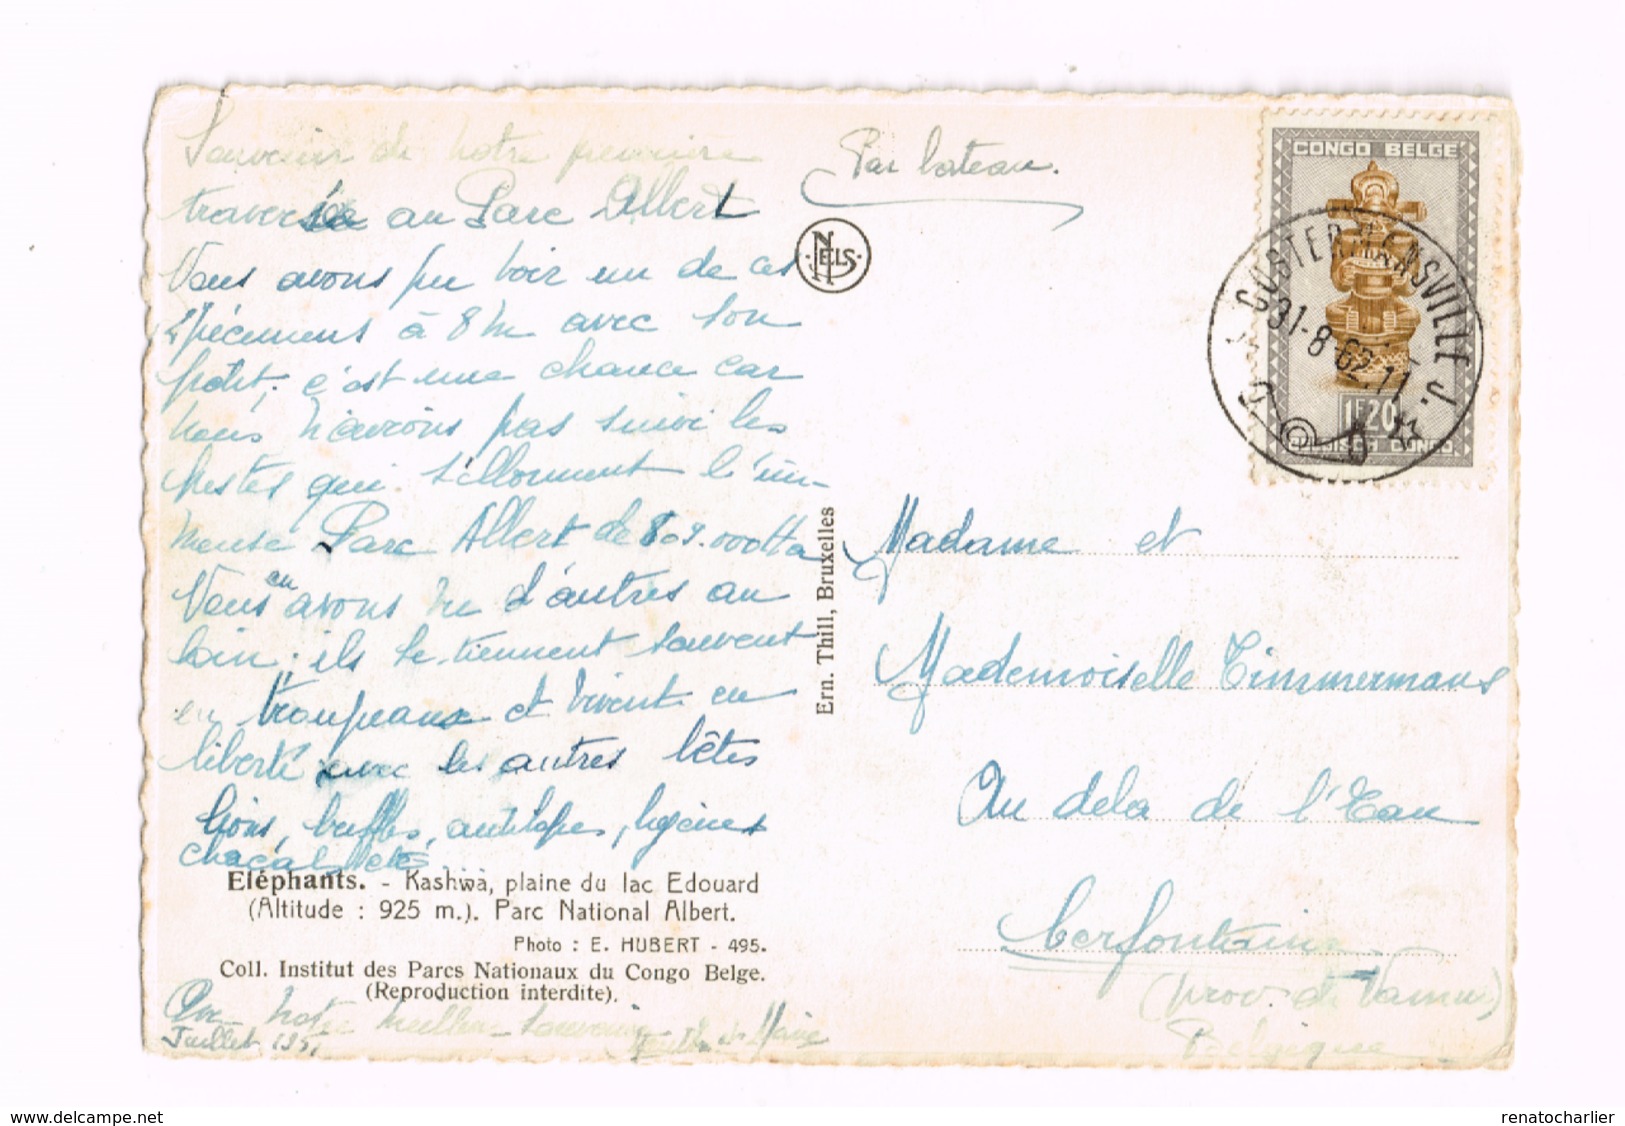 Souvenir de notre première
traversée au Parc Albert
Nous avons pu voir un de ces
spécimens à 8 m avec son
petit; c'est une chance car
nous n'avions pas suivi les
pistes qui sillonnent l'im-
mense Parc Albert de 809.000 Ha
Nous en avons vu d'autres au
loin; ils se tiennent souvent
en troupeaux et vivent en
liberté avec les autres bêtes
lions, buffles, antilopes, hyènes
chacals etc
Eléphants. - Kashwa, plaine du lac Edouard
(Altitude : 925 m.). Parc National Albert.
Photo : E. HUBERT - 495.
Coll. Institut des Parcs Nationaux du Congo Belge.
(Reproduction interdite).
notre meilleur souvenir
Juillet 1951
Par bateau.
NELS
Ern. Thill, Bruxelles
CONGO BELGE
1F20
BELGISCH CONGO
COSTERMANSVILLE
31-8-62.11
Madame et
Mademoiselle Timmermans
Au dela de l'Eau
Cerfontaine
(Prov. de Namur)
Belgique
renatocharlier